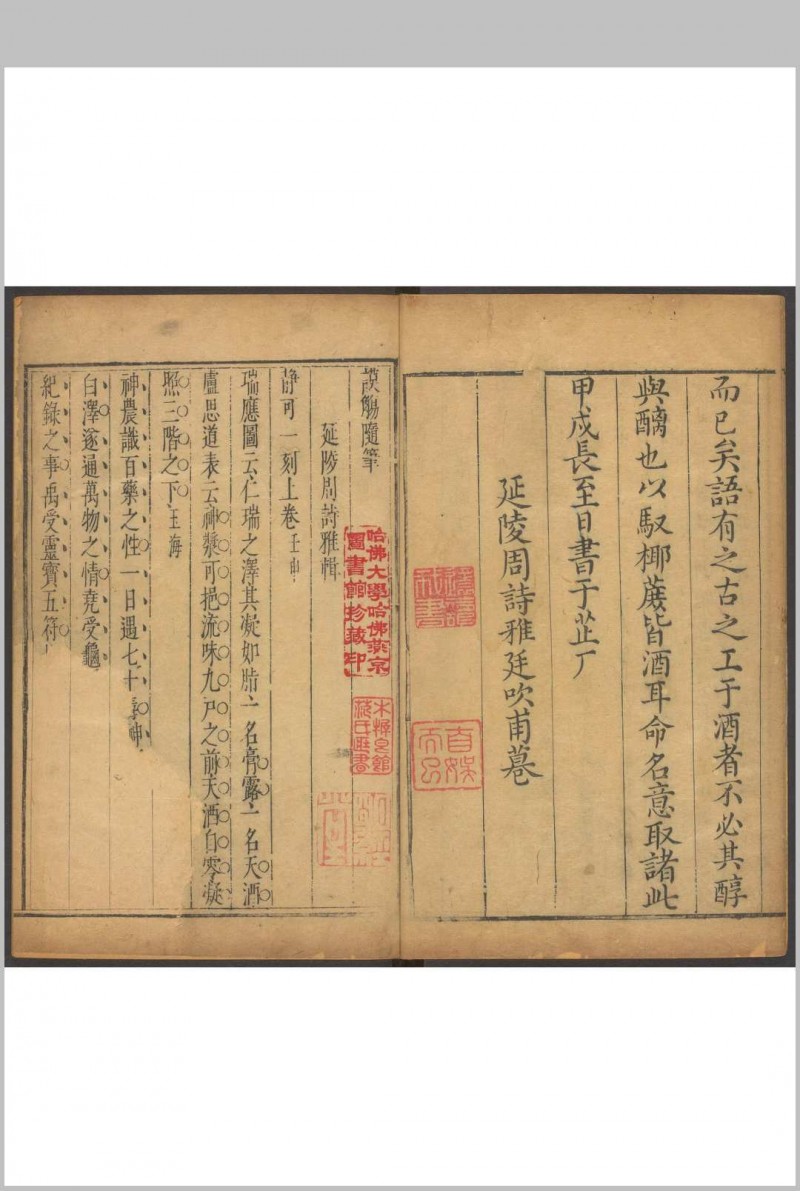 而已矣語有之古之工于酒者不必其醇
與醨也以馭椰蔗皆酒耳命名意取諸此
甲戌長至日書于芷厂
延陵周詩雅廷吹甫
自娛
而已
謨觴隨筆
延陵周詩雅輯
靜可一刻上卷 壬申
瑞應圖云仁瑞之澤其凝如脂一名膏露一名天酒
盧思道表云神漿可挹流味九戶之前天酒自零凝
照三階之下玉海
神農識百藥之性一日遇七十毒神
白澤遂通萬物之情堯受龜
紀錄之事禹受靈寶五符
哈佛大學哈佛燕京
圖書館珍藏印